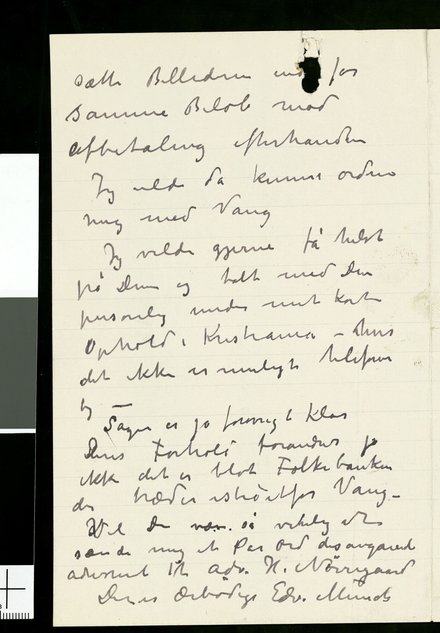 sætte Billederne ind for
samme Beløb mod
afbetaling efterhånden
Jeg vilde da kunne ordne
mig med Vang
Jeg vilde gjerne få hilst
på Dem og talt med Dem
personlig under mit korte
Ophold i Kristiania – hvis
det ikke er muligt telefon
Sagen er jo forøvrigt klar
Deres Forhold forandres jo
ikke det er blot Folkebanken
der træder istedetfor Vang –
Vil De være så venlig at
sende mig et Par Ord desangaaende
adressert til Adv. H. Nørregaard
Deres ærbødige Edv. Munch